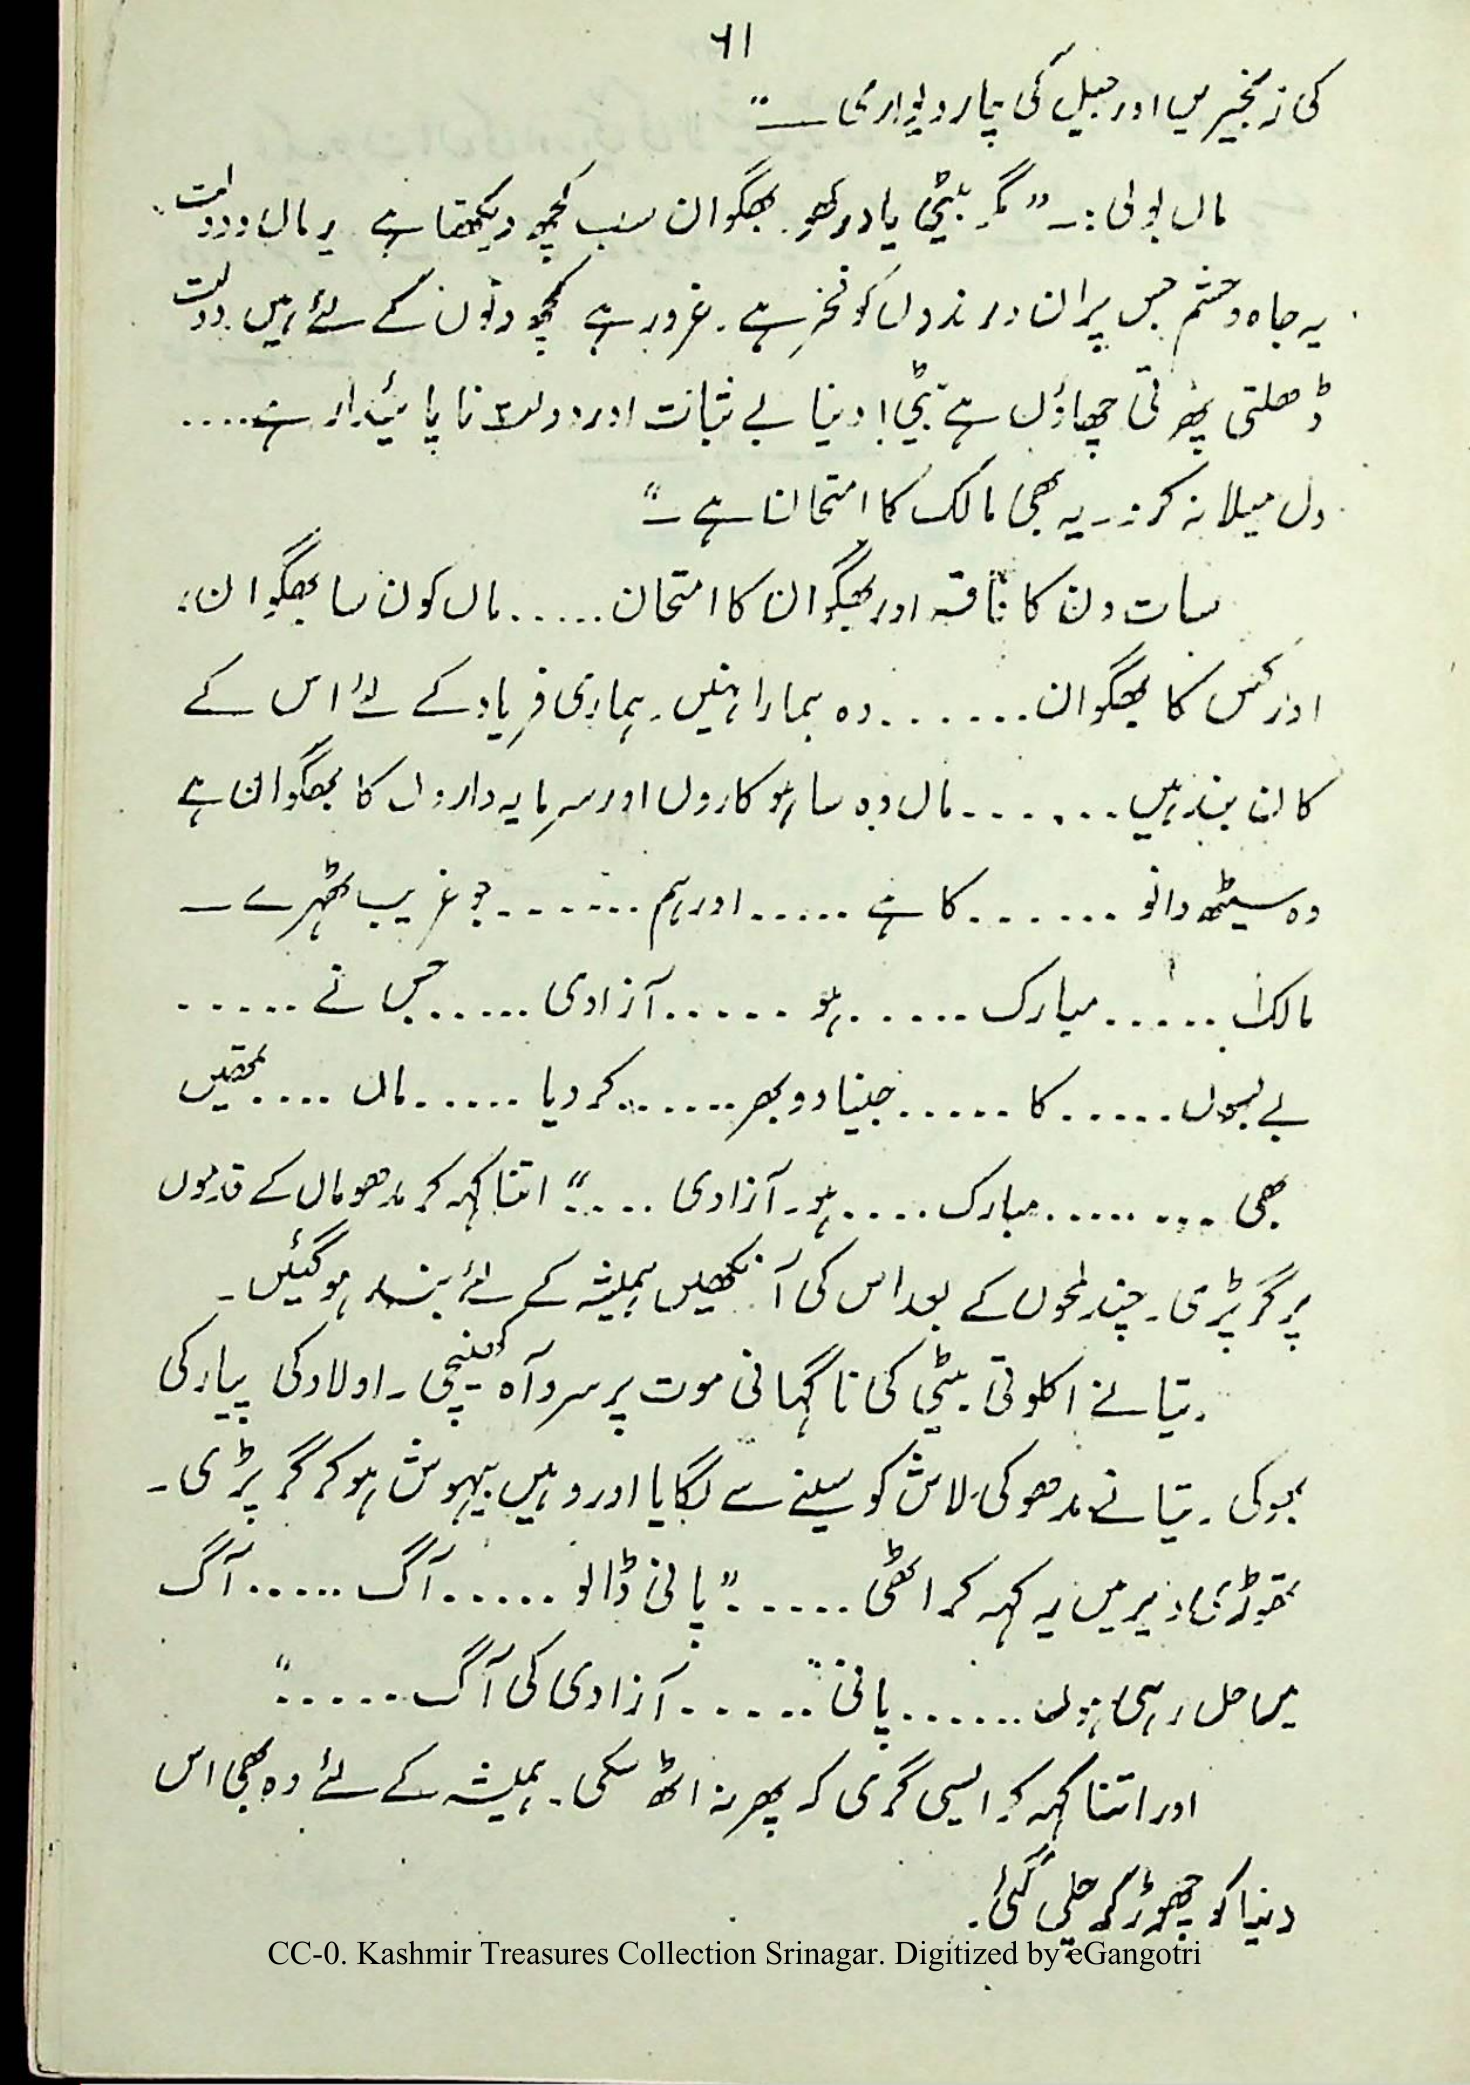 ۶۱
کی زنجیریں اور جیل کی چار دیواری ــــ"
ماں بولی :۔ "مگر بیٹی یاد رکھو۔ بھگوان سب کچھ دیکھتا ہے یہ مال و دولت
یہ جاہ و حشم جس پر ان درندوں کو فخر ہے۔ غرور ہے کچھ دنوں کے لئے ہیں۔ دولت
ڈھلتی پھرتی چھاؤں ہے بیٹی! دنیا بے ثبات اور دولت ناپائیدار ہے....
دل میلا نہ کرنا۔ یہ بھی مالک کا امتحان ہے۔"
سات دن کا فاقہ اور بھگوان کا امتحان..... ماں کون سا بھگوان؛
اور کس کا بھگوان...... وہ ہمارا نہیں۔ ہماری فریاد کے لئے اس کے
کان بند ہیں....... ماں وہ ساہوکاروں اور سرمایہ داروں کا بھگوان ہے
وہ سیٹھ دانو ....... کا ہے ..... اور ہم ....... جو غریب ٹھہرے ــ
مالک ..... مبارک ..... ہو ..... آزادی ..... جس نے .....
بے بسوں ..... کا ..... جینا دوبھر ...... کر دیا ..... ماں .... تمھیں
بھی ........ مبارک .... ہو۔ آزادی ...." اتنا کہہ کر مدھو ماں کے قدموں
پر گر پڑی۔ چند لمحوں کے بعد اس کی آنکھیں ہمیشہ کے لئے بند ہو گئیں۔
رتیا نے اکلوتی بیٹی کی ناگہانی موت پر سرد آہ کھینچی۔ اولاد کی پیار کی
بھوکی۔ رتیا نے مدھو کی لاش کو سینے سے لگایا اور وہیں بیہوش ہو کر گر پڑی۔
تھوڑی دیر میں یہ کہہ کر اٹھی ..... "پانی ڈالو ..... آگ ..... آگ
میں جل رہی ہوں ...... پانی ..... آزادی کی آگ ......"
اور اتنا کہہ کر ایسی گری کہ پھر نہ اٹھ سکی۔ ہمیشہ کے لئے وہ بھی اس
دنیا کو چھوڑ کر چلی گئی۔
CC-0. Kashmir Treasures Collection Srinagar. Digitized by eGangotri